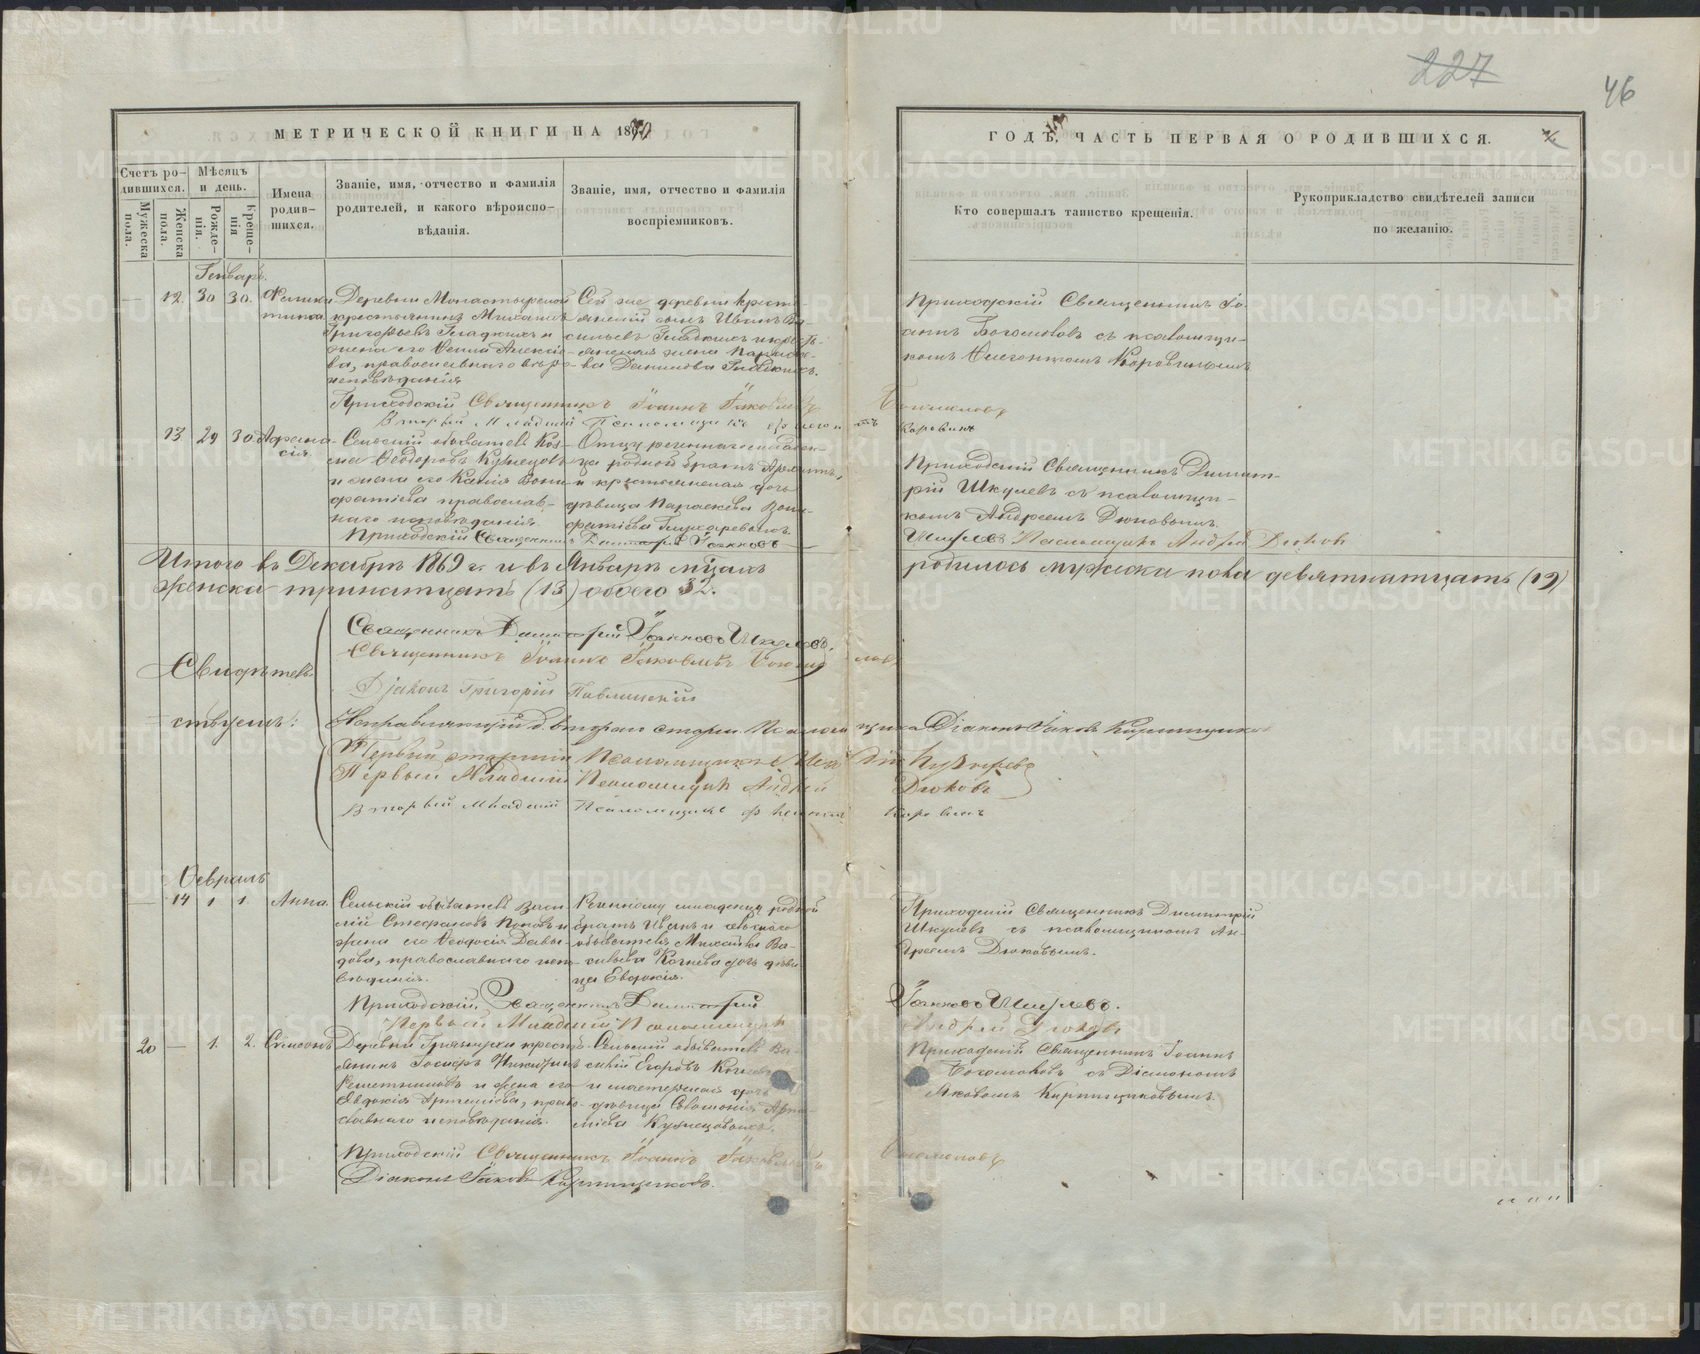 227
46
МЕТРИЧЕСКОЙ КНИГИ НА 1870
ГОДЪ, ЧАСТЬ ПЕРВАЯ О РОДИВШИХСЯ.
Счетъ ро-
дившихся.
Мужеска пола.
Женска пола.
Мѣсяцъ и день.
Рожде-
нія.
Креще-
нія
Имена
родив-
шихся.
Званіе, имя, отчество и фамилія
родителей, и какого вѣроиспо-
вѣданія.
Званіе, имя, отчество и фамилія
воспріемниковъ.
Кто совершалъ таинство крещенія.
Рукоприкладство свидѣтелей записи
по желанію.
Генварь.
12. 30 30.
Деревни Монастырской
крестьянинъ Михаилъ
Григорьевъ Гладкихъ и
жена его Ѳекла Алексѣе-
ва, православнаго вѣро-
исповѣданія
Сей же деревни кресть-
янскій сынъ Иванъ Ва-
сильевъ Гладкихъ и кресть-
янская жена Параске-
ва Данилова Гладкихъ.
Приходскій Священникъ Іо-
аннъ Богомоловъ съ псаломщи-
комъ Коровинымъ
Приходскій Священникъ Іоаннъ Іаковлевъ Богомоловъ
Вторый Младшій Псаломщикъ Коровинъ
13 29 30 Афана-
сія
Сельскій обыватель Коз-
ма Ѳеодоровъ Кузнецовъ
и жена его Ксенія Вони-
фатіева православ-
наго исповѣданія.
Отцу реченнаго младен-
ца родной братъ
и крестьянская дочь
дѣвица Параскева Вони-
фатіева
Приходскій Священникъ Димит-
рій Шкулевъ съ псаломщи-
комъ Андреемъ Дюковымъ.
Приходскій Священникъ Димитрій Іоанновъ
Шкулевъ Псаломщикъ Андрей Дюковъ
Итого въ Декабрѣ 1869 г. и въ Январѣ мцахъ родилось мужеска пола девятнатцать (19)
женска тринатцать (13) обоего 32.
Свидѣтель-
ствуемъ:
Священникъ Димитрій Іоанновъ Шкулевъ.
Священникъ Іоаннъ Іаковлевъ Богомоловъ
Діаконъ Григорій Павлинскій
Исправляющій д. втораго старш. Псаломщика Діаконъ Іаковъ Кирпищиковъ
Первый старшій Псаломщикъ
Первый Младшій Псаломщикъ Андрей Дюковъ
Вторый Младшій Псаломщикъ Коровинъ
Ѳевраль
14 1 1. Анна.
Сельскій обыватель Васи-
лій Стефановъ Поповъ и
жена его Ѳеодосія Давы-
дова, православнаго испо-
вѣданія.
Реченному младенцу родной
братъ Иванъ и сельскаго
обывателя Михаила Ва-
сильева Кочнева дочь дѣви-
ца Евдокія.
Приходскій Священникъ Димитрій
Шкулевъ съ псаломщикомъ Ан-
дреемъ Дюковымъ.
Приходскій Священникъ Димитрій Іоанновъ Шкулевъ.
Первый Младшій Псаломщикъ Андрей Дюковъ
20 — 1. 2. Симеонъ
Деревни Грязнухи кресть-
янинъ Іосифъ Никитинъ
Решетниковъ и жена его
Евдокія Артемьева, право-
славнаго исповѣданія.
Сельскій обыватель Ва-
силій Егоровъ Кочневъ
и мастерская дочь
дѣвица Соломонія Арте-
мьева Кузнецовыхъ.
Приходскій Священникъ Іоаннъ
Богомоловъ съ Діакономъ
Яковомъ Кирпищиковымъ
Приходскій Священникъ Іоаннъ Іаковлевъ Богомоловъ
Діаконъ Іаковъ Кирпищиковъ.
METRIKI.GASO-URAL.RU